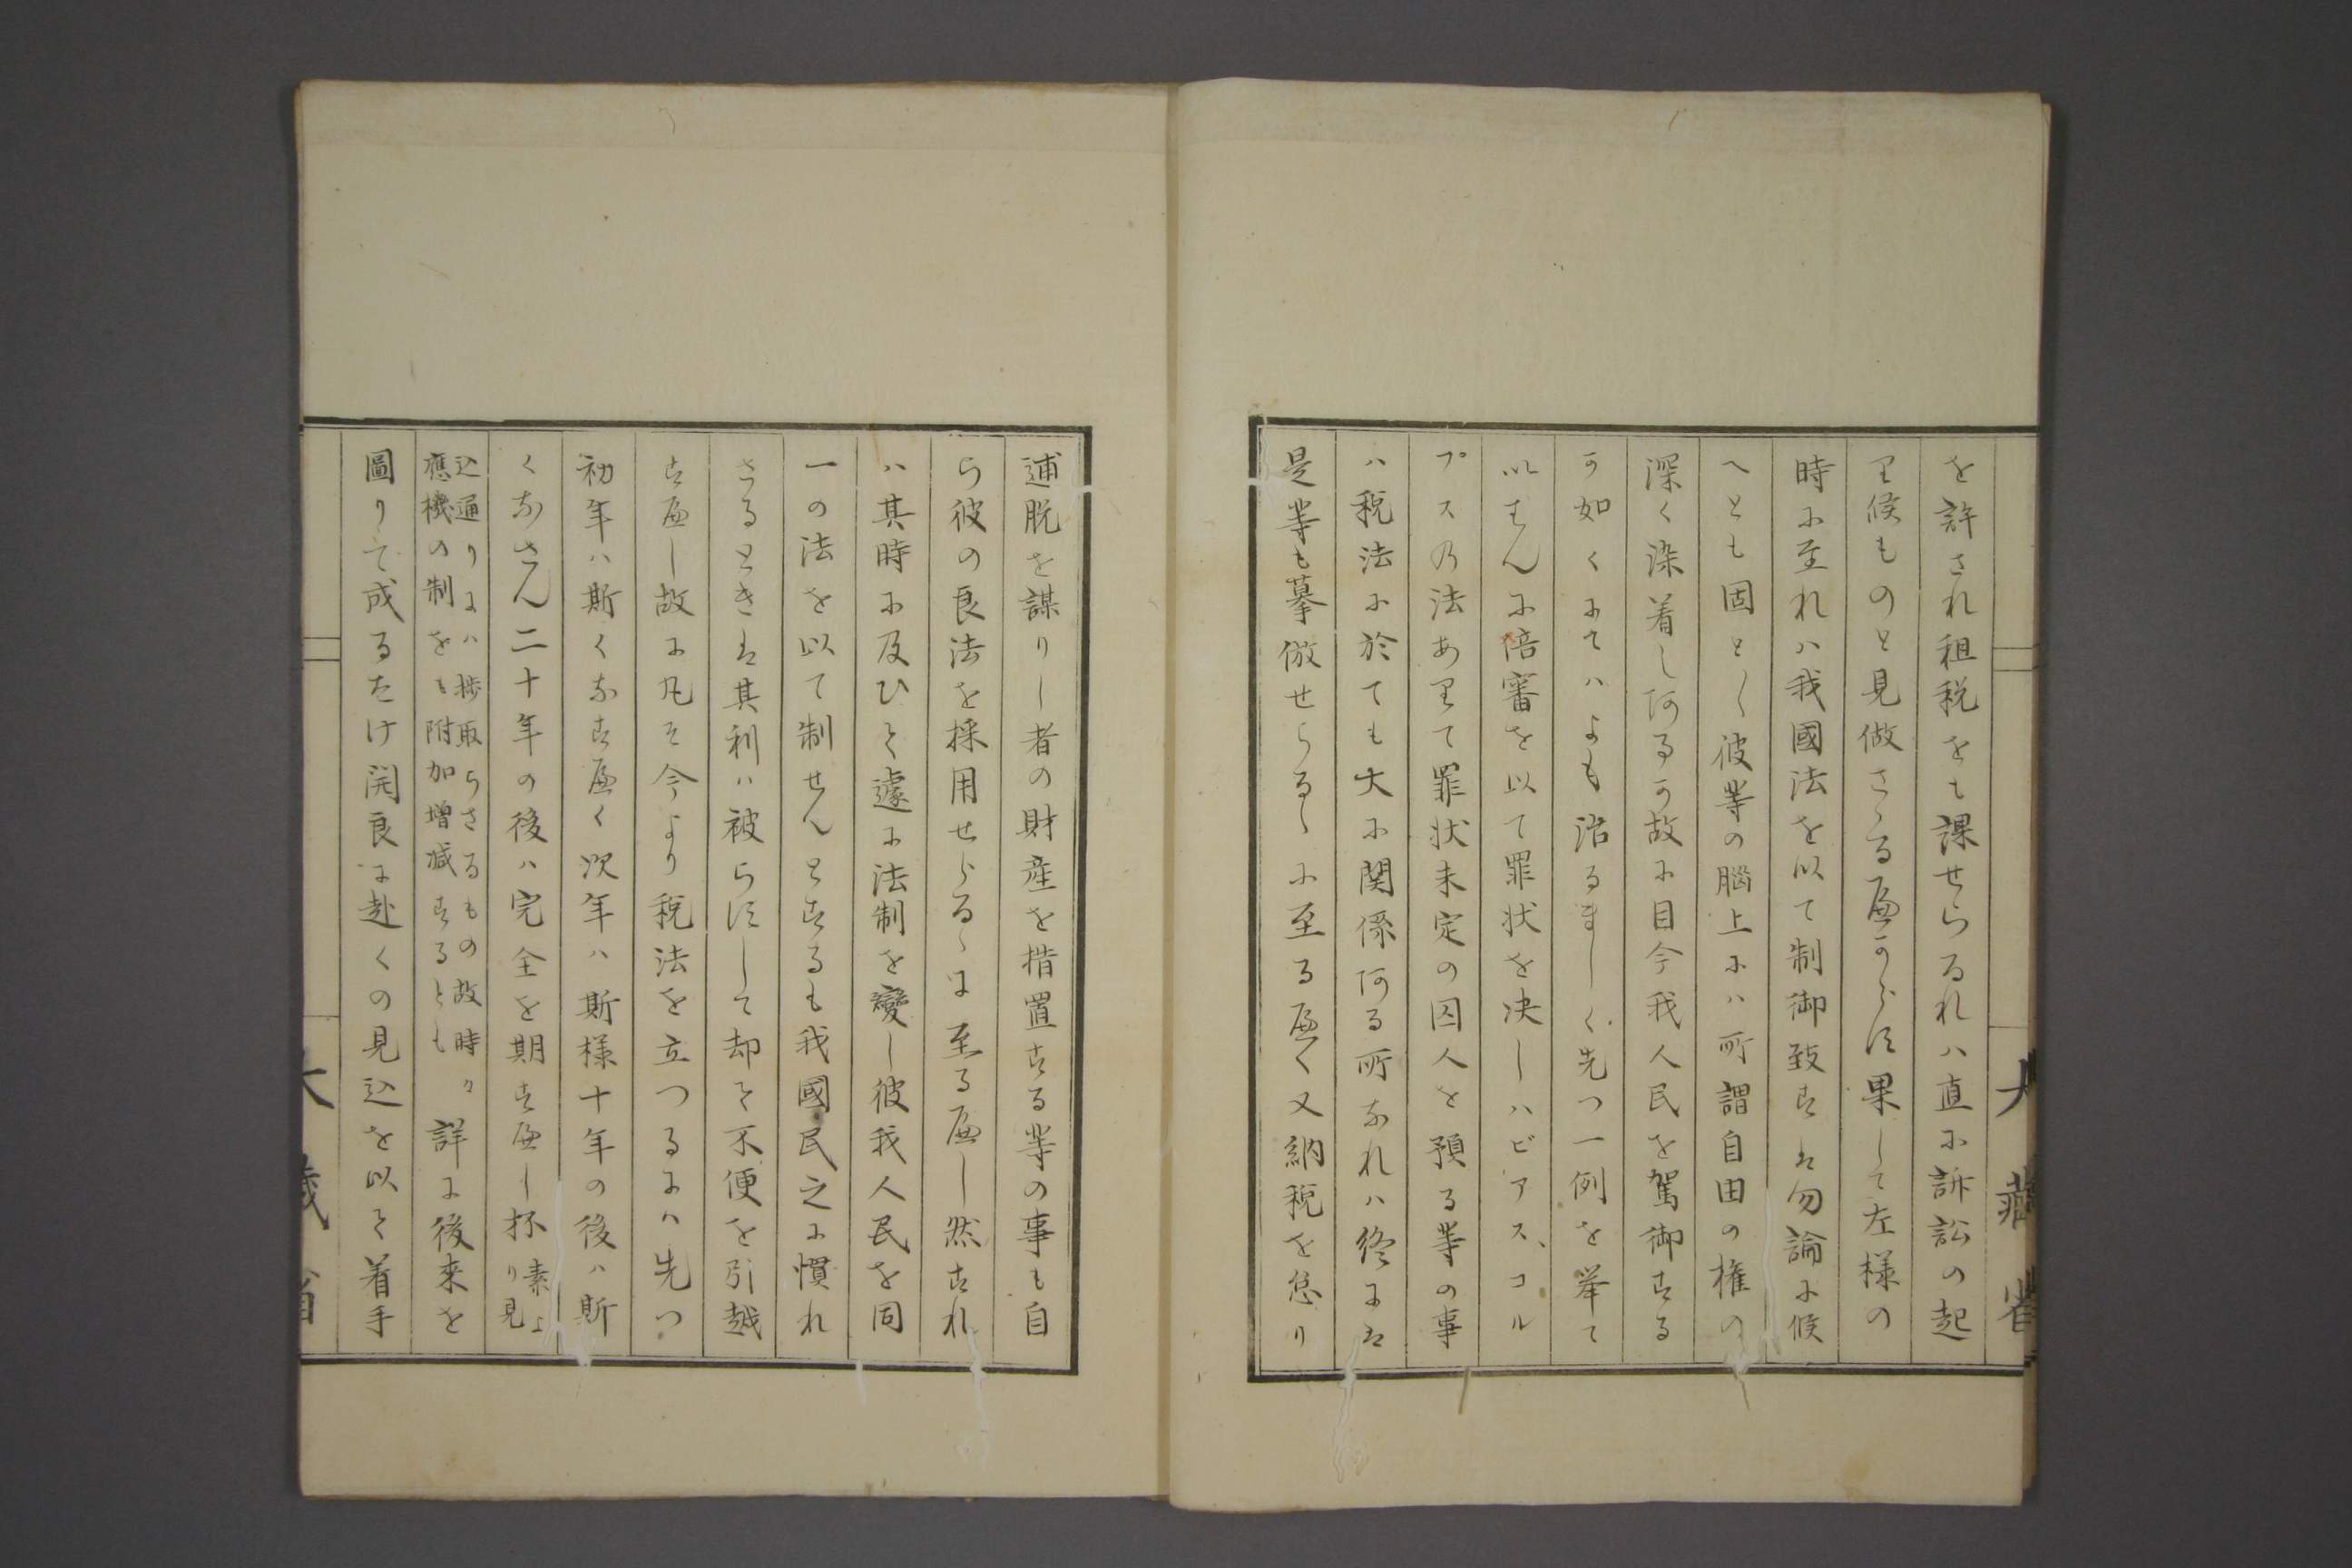 を許され租税をも課せらるれハ直に訴訟の起
り候ものと見做さゝる可からす果して左様の
時に至れハ我國法を以て制御致すは勿論に候
へとも固とく彼等の脳上にハ所謂自由の権の
深く染着しあるか故に目今我人民を駕御する
か如くにてハよも治るましく先つ一例を挙て
以はんに陪審を以て罪状を决しハビアス、コル
プスの法ありて罪状未定の囚人を預る等の事
ハ税法に於ても大に関係ある所なれハ終には
是等も摹倣せらるゝに至る可く又納税を怠り
逋脱を謀りし者の財産を措置する等の事も自
ら彼の良法を採用せらるゝに至る可し然すれ
ハ其時に及ひて遽に法制を變し彼我人民を同
一の法を以て制せんとするも我國民之に慣れ
さるときは其利ハ被らすして却て不便を引越
す可し故に凡そ今より税法を立つるにハ先つ
初年ハ斯くなす可く次年ハ斯様十年の後ハ斯
くなさん二十年の後ハ完全を期す可し抔素より見
込通りにハ捗取らさるもの故時々
應機の制をも附加増减するとも詳に後来を
圖りて成るたけ開良に赴くの見込を以て着手
大藏省
大藏省